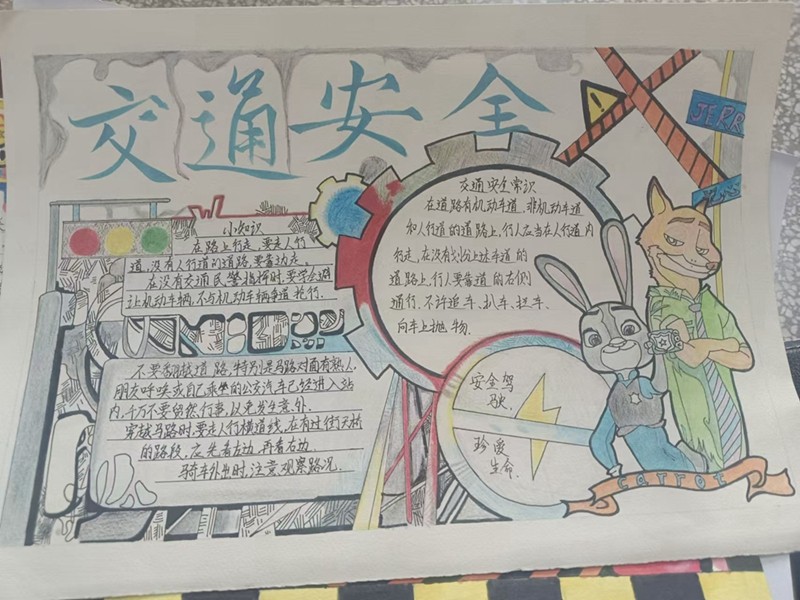 交通安全
JERR
小知识
在路上行走,要走人行
道,没有人行道的道路,要靠边走.
在没有交通民警指挥时,要学会避
让机动车辆,不与机动车辆争道抢行.
不要 道路,特别是马路对面有熟人,
朋友呼唤或自己乘坐的公交汽车已经进入站
内,千万不要贸然行事,以免发生意外.
穿越马路时,要走人行横道线,在有过街天桥
的路段,应先看左边,再看右边.
骑车外出时,注意观察路况.
交通安全常识
在道路有机动车道、非机动车道
和人行道的道路上,行人应当在人行道内
行走,在没有划分上述车道的
道路上,行人要靠道的右侧
通行.不许追车、扒车、拦车、
向车上抛物.
安全驾
驶,
珍爱
生命.
CARROT